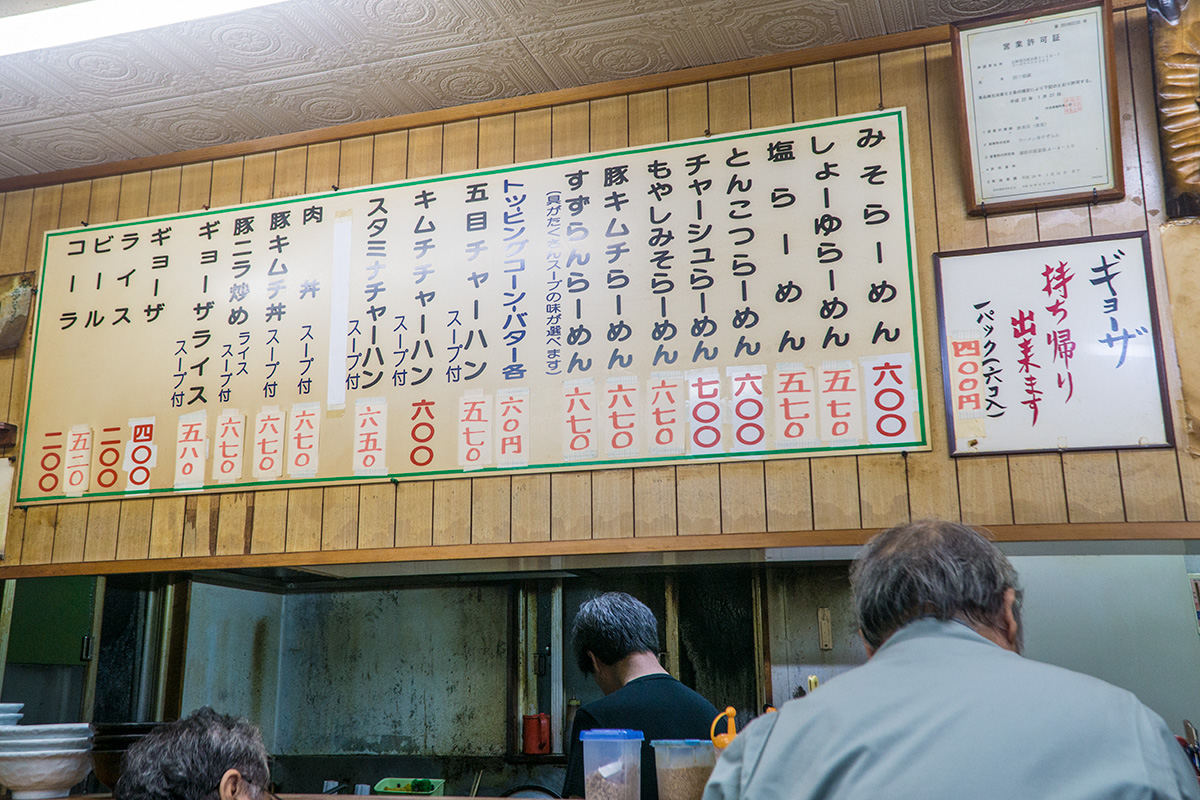 みそらーめん 六〇〇
しょーゆらーめん 五七〇
塩らーめん 五七〇
とんこつらーめん 六〇〇
チャーシュらーめん 七〇〇
もやしみそらーめん 六七〇
豚キムチらーめん 六七〇
すずらんらーめん 六七〇
(具がたくさんスープの味が選べます)
トッピングコーン・バター各 六〇円
五目チャーハン スープ付 五七〇
キムチチャーハン スープ付 六〇〇
スタミナチャーハン スープ付 六五〇
肉丼 スープ付 六七〇
豚キムチ丼 スープ付 六七〇
豚ニラ炒め ライス スープ付 六七〇
ギョーザライス スープ付 五八〇
ギョーザ 四〇〇
ライス 二〇〇
ビール 五二〇
コーラ 二〇〇
営業許可証
ギョーザ
持ち帰り
出来ます
一パック(六コ入)
四〇〇円